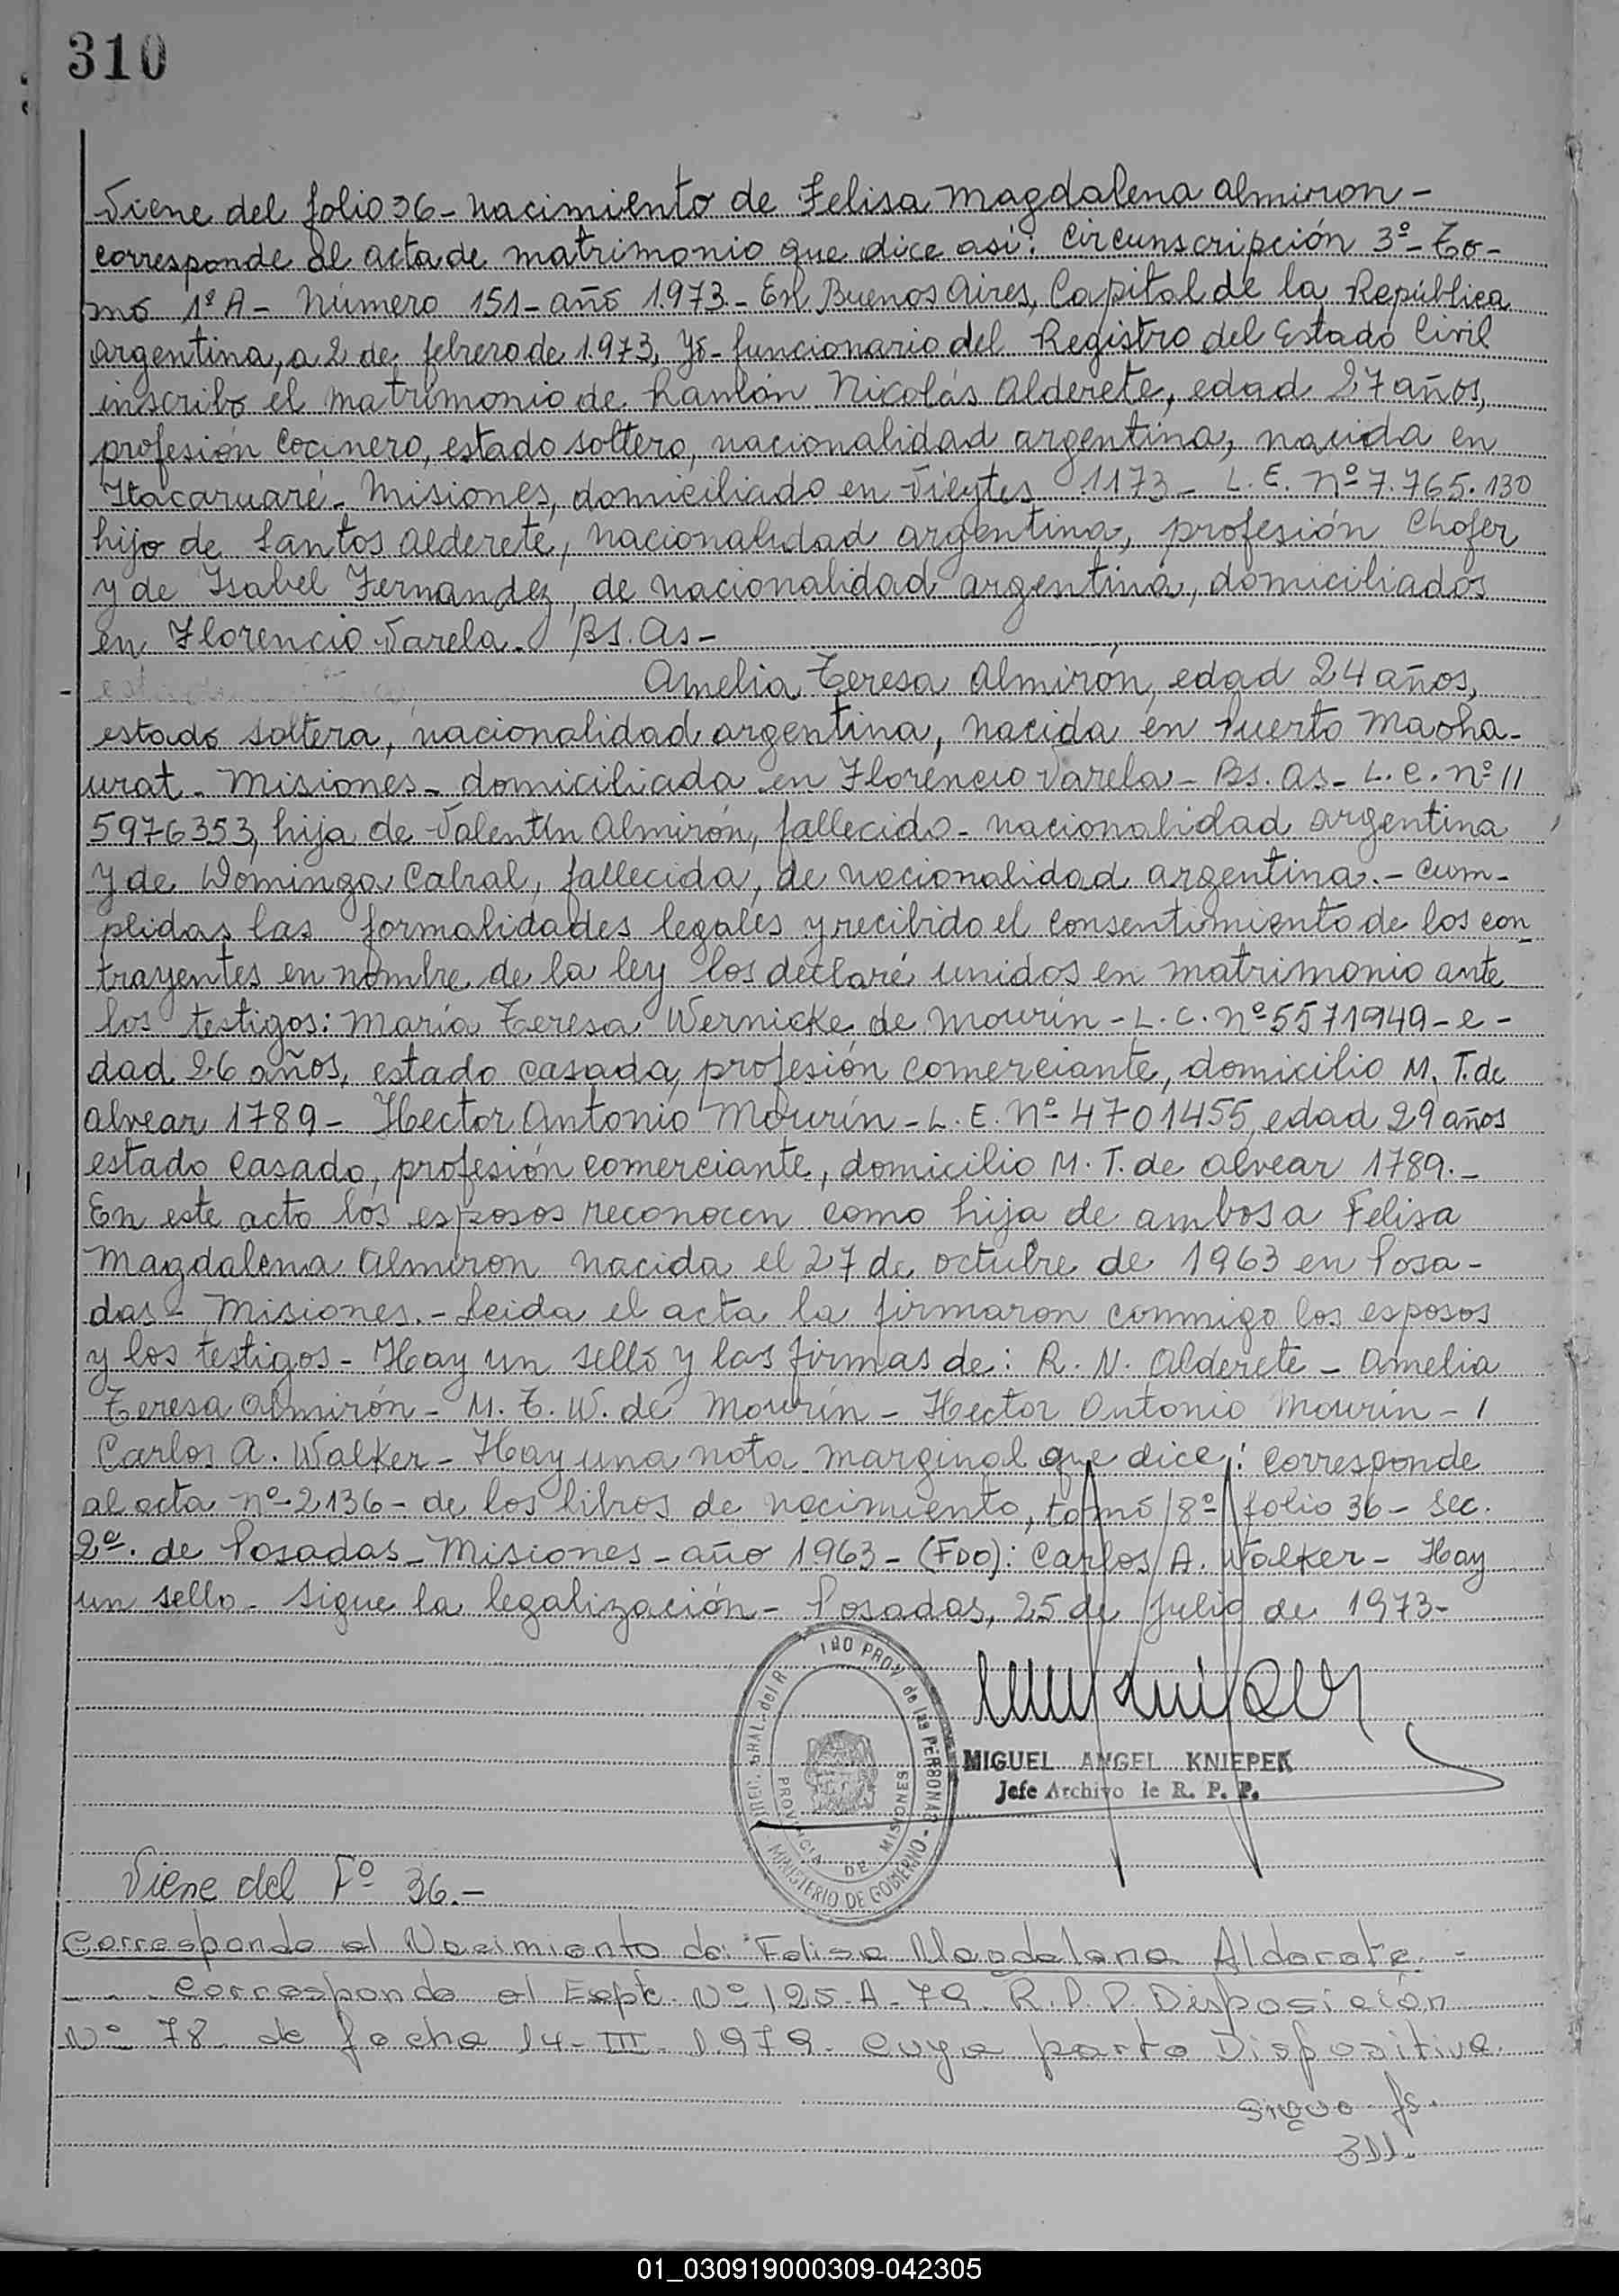 310
Viene del folio 36 - nacimiento de Felisa Magdalena Almiron -
corresponde al acta de matrimonio que dice así: Circunscripción 3º - To-
mo 1º A - Número 151 - año 1973 - En Buenos Aires, Capital de la República
Argentina, a 2 de febrero de 1973, Yo - funcionario del Registro del Estado Civil
inscribo el matrimonio de Ramón Nicolás Alderete, edad 27 años,
profesión Cocinero, estado soltero, nacionalidad argentina, nacida en
Itacaruaré - Misiones, domiciliado en Vieytes 1173 - L. E. Nº 7.765.130
hijo de Santos Alderete, nacionalidad argentina, profesión Chofer
y de Isabel Fernandez, de nacionalidad argentina, domiciliados
en Florencio Varela - Bs. As -
Amelia Teresa Almirón, edad 24 años,
estado soltera, nacionalidad argentina, nacida en Puerto Macha-
urat - Misiones - domiciliada en Florencio Varela - Bs. As - L. C. Nº 11
5976353, hija de Valentín Almirón, fallecido - nacionalidad argentina
y de Dominga Cabral, fallecida, de nacionalidad argentina. - Cum-
plidas las formalidades legales y recibido el consentimiento de los con-
trayentes en nombre de la ley los declaré unidos en matrimonio ante
los testigos: María Teresa Wernicke de Mourín - L. C. Nº 5571949 - e-
dad 26 años, estado casada, profesión comerciante, domicilio M. T. de
Alvear 1789 - Hector Antonio Mourín - L. E. Nº 4701455, edad 29 años
estado casado, profesión comerciante, domicilio M. T. de Alvear 1789. -
En este acto los esposos reconocen como hija de ambos a Felisa
Magdalena Almiron nacida el 27 de octubre de 1963 en Posa-
das - Misiones. - Leida el acta la firmaron conmigo los esposos
y los testigos - Hay un sello y las firmas de: R. N. Alderete - Amelia
Teresa Almirón - M. T. W. de Mourín - Hector Antonio Mourín - /
Carlos A. Walker - Hay una nota marginal que dice: Corresponde
al acta Nº 2136 - de los libros de nacimiento, tomo 8º folio 36 - Sec.
2ª. de Posadas - Misiones - año 1963 - (FDO): Carlos A. Walker - Hay
un sello - sigue la legalización - Posadas, 25 de julio de 1973 -
DIREC. GRAL. del R PROV. de las PERSONAS - MINISTERIO DE GOBIERNO -
PROVINCIA DE MISIONES
MIGUEL ANGEL KNIEPEK
Jefe Archivo de R. P. P.
Viene del Fº 36. -
Corresponde al Nacimiento de: Felisa Magdalena Alderete. -
- - - Corresponde al Expte. Nº 125-A-79. R.P.P. Disposición
Nº 78 de fecha 14-III-1979. Cuya parte Dispositiva.
Sigue fs.
311.
01_030919000309-042305